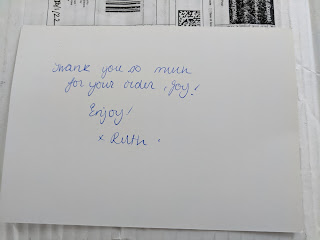 Thank you so much
for your order, Joy!
Enjoy!
x Ruth